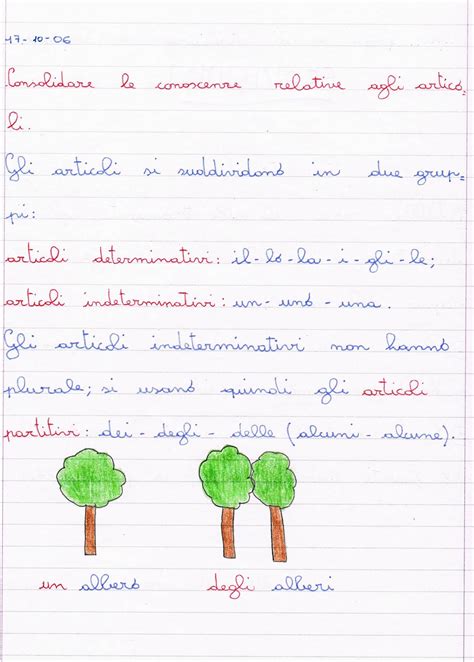 17-10-06
Consolidare le conoscenze relative agli artico=
li.
Gli articoli si suddividono in due grup=
pi:
articoli determinativi: il-lo-la-i-gli-le;
articoli indeterminativi: un-uno-una.
Gli articoli indeterminativi non hanno
plurale; si usano quindi gli articoli
partitivi: dei-degli-delle (alcuni-alcune).
un albero degli alberi